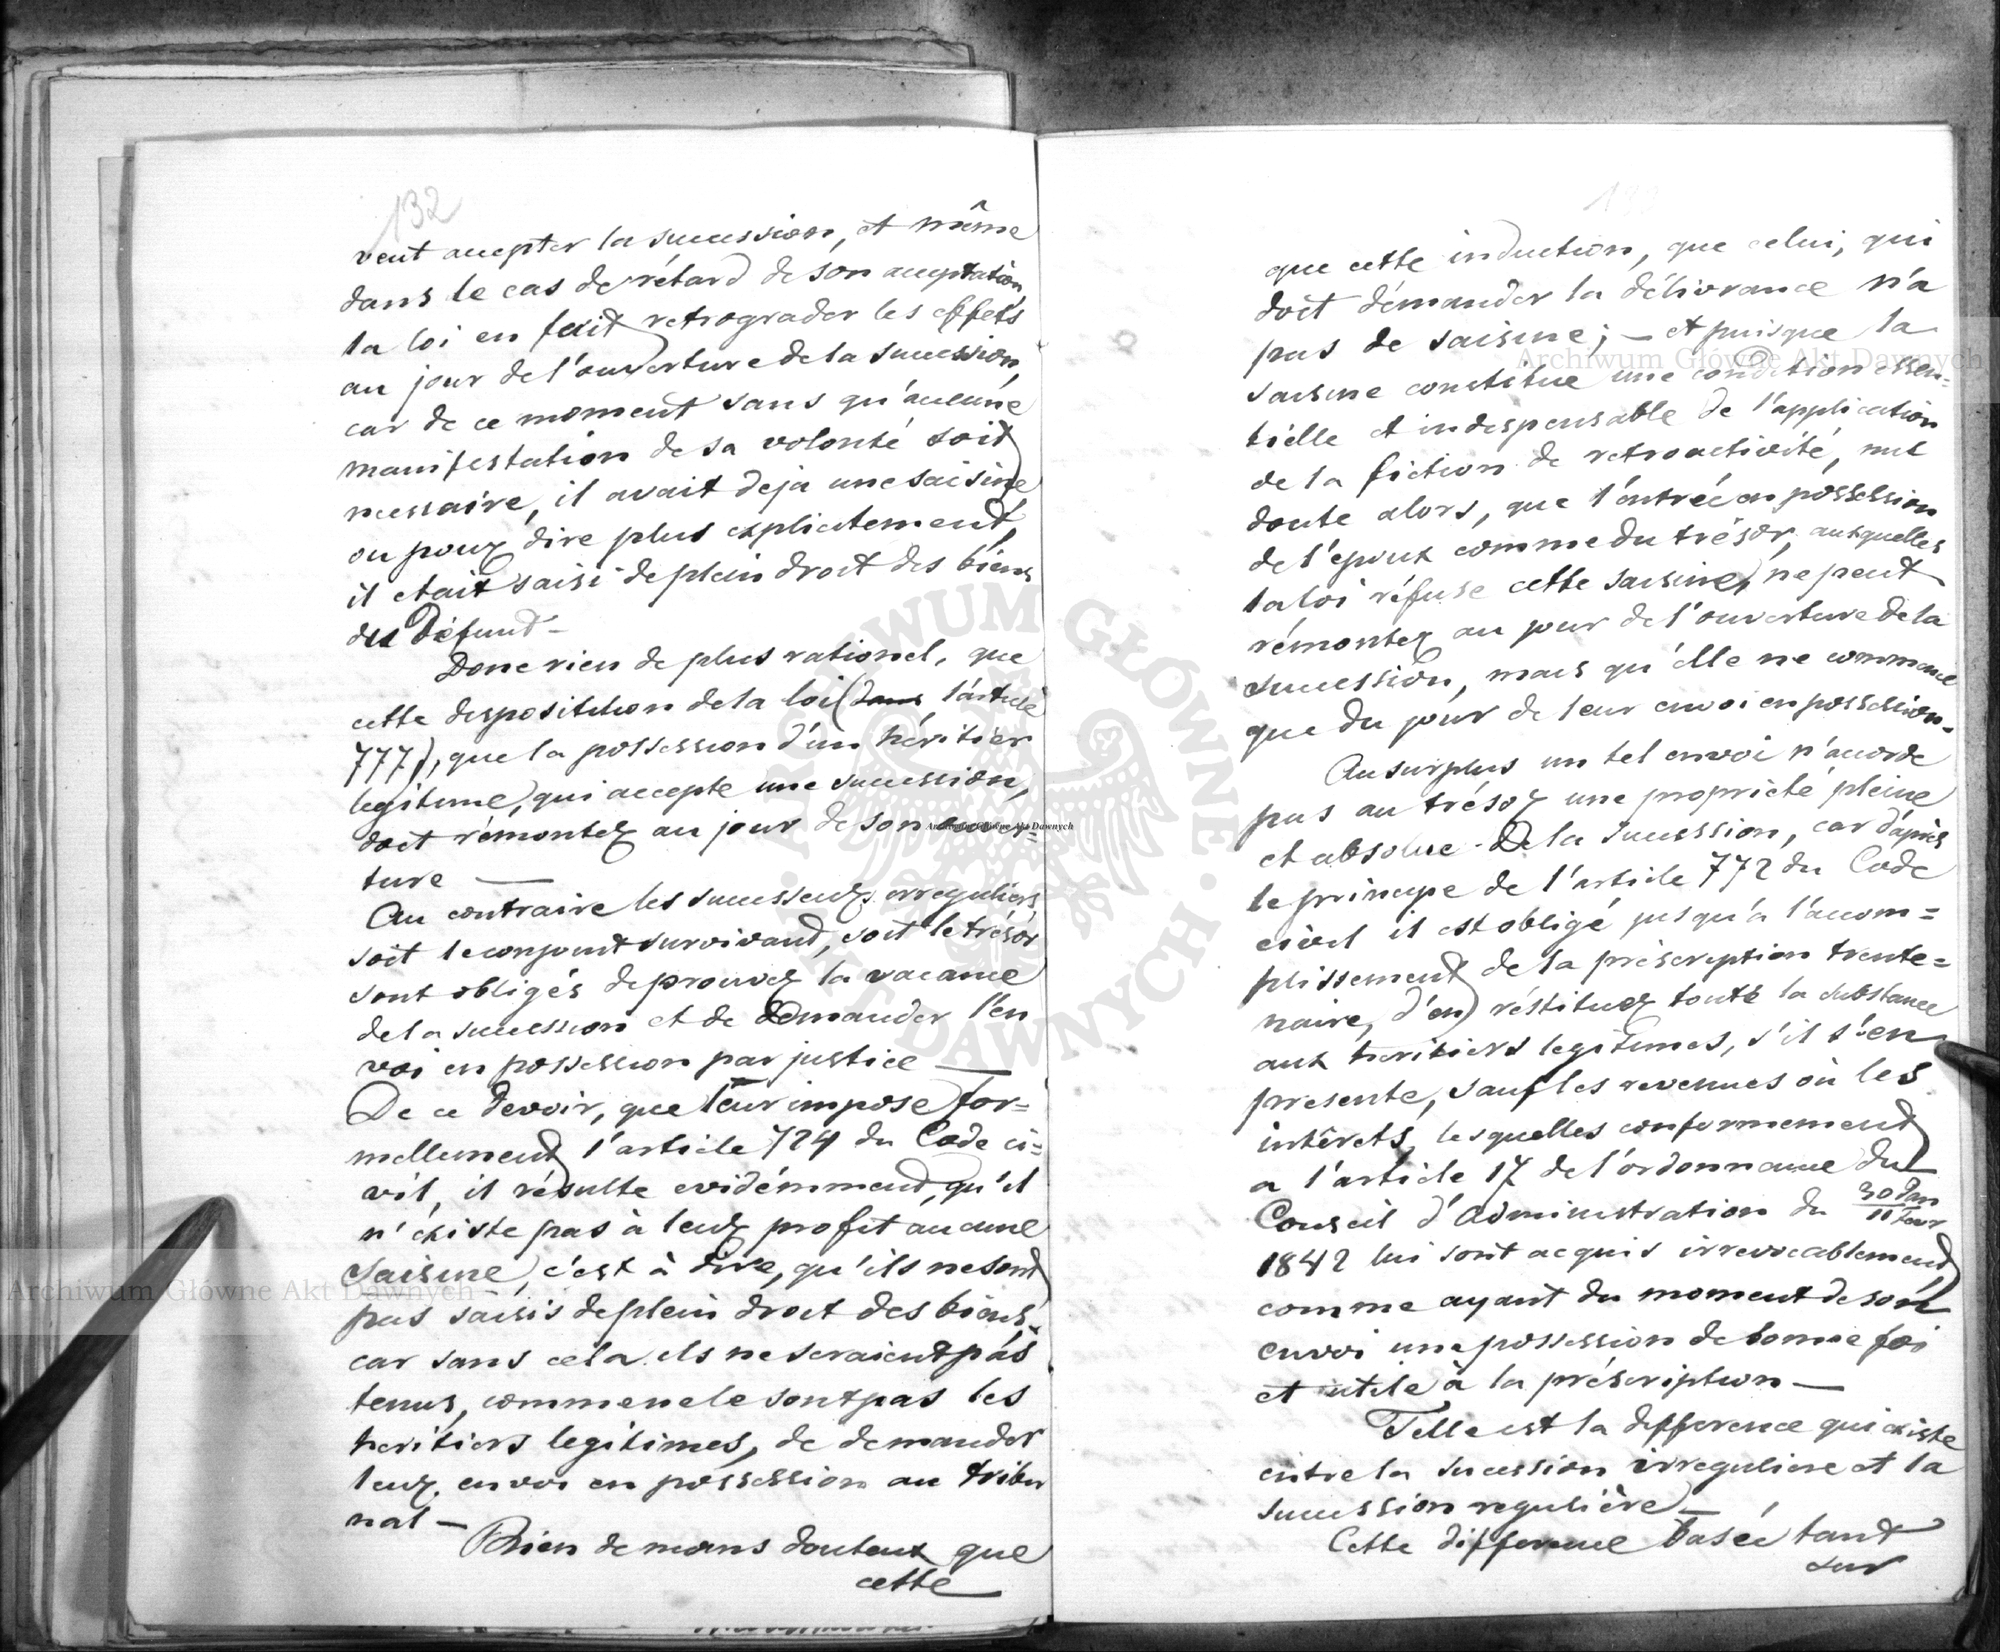 132
veut accepter la succession, et même
dans le cas de rétard de son acceptation
la loi en fait retrograder les effets
au jour de l'ouverture de la succession,
car de ce moment sans qu'aucune
manifestation de sa volonté soit
necessaire, il avait deja une saisine
ou pour dire plus explicitement,
il etait saisi de plein droit des biens
du défunt –
Donc rien de plus rationel, que
cette desposition de la loi (dans l'article
777), que la possession d'un héritier
legitime, qui accepte une succession,
doit rémonter au jour de son ouver=
ture —
Au contraire les successeurs irreguliers
soit le conjoint survivand, soit le trésor
sont obligés de prouver la vacance
de la succession et de demander l'en
voi en possession par justice —
De ce devoir, que leur impose for=
mellement l'article 724 du Code ci=
vil, il résulte evidémmend, qu'il
n'éxiste pas à leur profit aucune
saisine, c'est à dire, qu'ils ne sont
pas saisis de plein droit des biens,
car sans cela ils ne seraient pas
tenus, comme ne le sont pas les
heritiers legitimes, de demander
leur envoi en possession au tribu
nal –
Rien de moins douteux que
cette
que cette induction, que celui, qui
doit démander la délivrance n'a
pas de saisine; – et puisque la
saisine constitue une condition essen=
tielle et indespensable de l'application
de la fiction de retroactivité, nul
doute alors, que l'entrée en possession
de l'époux comme du trésor, auxquelles
la loi réfuse cette saisine, ne peut
rémonter au jour de l'ouverture de la
succession, mais qu'elle ne commence
que du jour de leur envoi en possession.
Au surplus un tel envoi n'accorde
pas au trésor une proprieté pleine
et absolue de la succession, car d'après
le principe de l'article 772 du Code
civil il est obligé jusqu'a l'accom=
plissement de la préscription trente=
naire, d'en réstituer toute la substance
aux heritiers legitimes, s'il s'en
presente, sauf les revenues où les
intérets, lesquelles conformement
a l'article 17 de l'ordonnance du
Conseil d'Administration du 30 Jan / 11 Fevr
1842 lui sont acquis irrevocablement,
comme ayant du moment de son
envoi une possession de bonne foi
et utile à la préscription —
Telle est la difference qui existe
entre la succession irreguliere et la
succession regulière —
Cette difference basée tant
sur
Archiwum Główne Akt Dawnych
Archiwum Główne Akt Dawnych
Archiwum Główne Akt Dawnych
ARCHIWUM GŁÓWNE AKT DAWNYCH